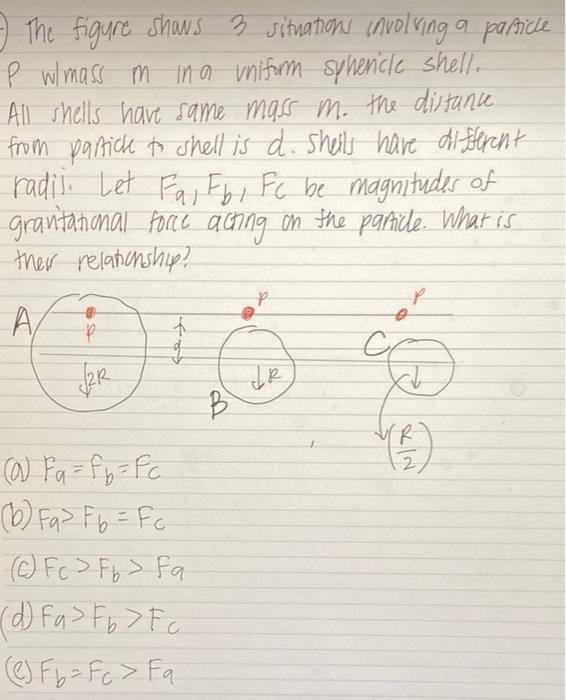 The figure shows 3 situations involving a particle
P w/mass m in a uniform sphericle shell.
All shells have same mass m. the distance
from particle to shell is d. Shells have different
radii. Let Fa, Fb, Fc be magnitudes of
gravitational force acting on the particle. What is
their relationship?
P
P
A
P
d
C
2R
R
B
R
2
(a) Fa = Fb = Fc
(b) Fa > Fb = Fc
(c) Fc > Fb > Fa
(d) Fa > Fb > Fc
(e) Fb = Fc > Fa